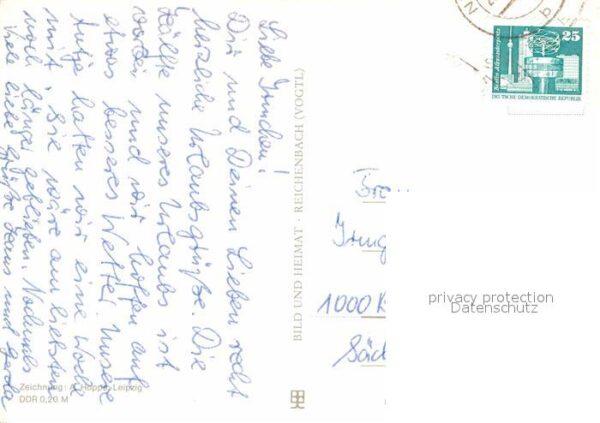 Liebe Irmchen!
Dir und Deinen Lieben recht
herzliche Urlaubsgrüße. Die
Hälfte unseres Urlaubs ist
vorbei und wir hoffen auf
etwas besseres Wetter. Unsere
Antje hatten wir eine Woche
mit, sie wäre am liebsten
noch länger geblieben. Nochmals
viele liebe Grüße Hans und Gerda
Zeichnung: A. Hoppe, Leipzig
DDR 0,20 M
BILD UND HEIMAT · REICHENBACH (VOGTL)
25
Berlin, Alexanderplatz
DEUTSCHE DEMOKRATISCHE REPUBLIK
1000
privacy protection
Datenschutz